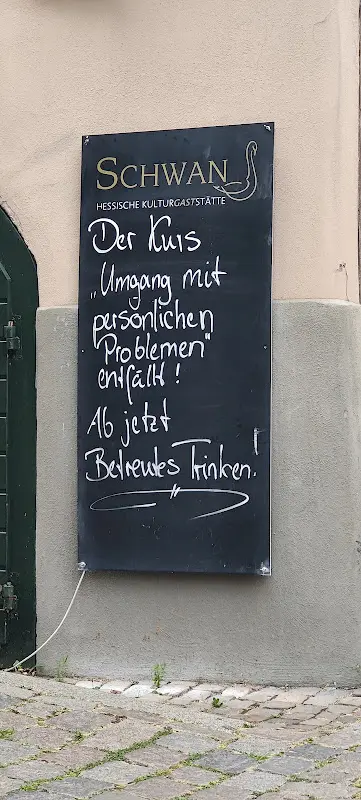 SCHWAN
HESSISCHE KULTURGASTSTÄTTE
Der Kurs
„Umgang mit
persönlichen
Problemen"
entfällt!
Ab jetzt
Betreutes Trinken!